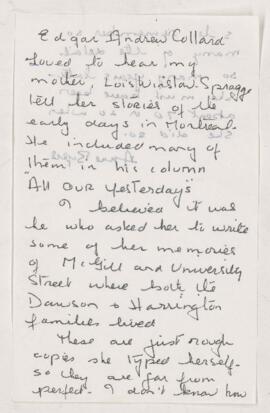 Edgar Andrew Collard
loved to hear my
mother, Lois Winslow-Spragge
tell her stories of the
early days in Montreal.
He included many of
them in his column
"All Our Yesterdays"
I believed it was
he who asked her to write
some of her memories
of McGill and University
Street where both the
Dawson & Harrington
families lived
These are just rough
copies she typed herself -
so they are far from
perfect - I don't know how